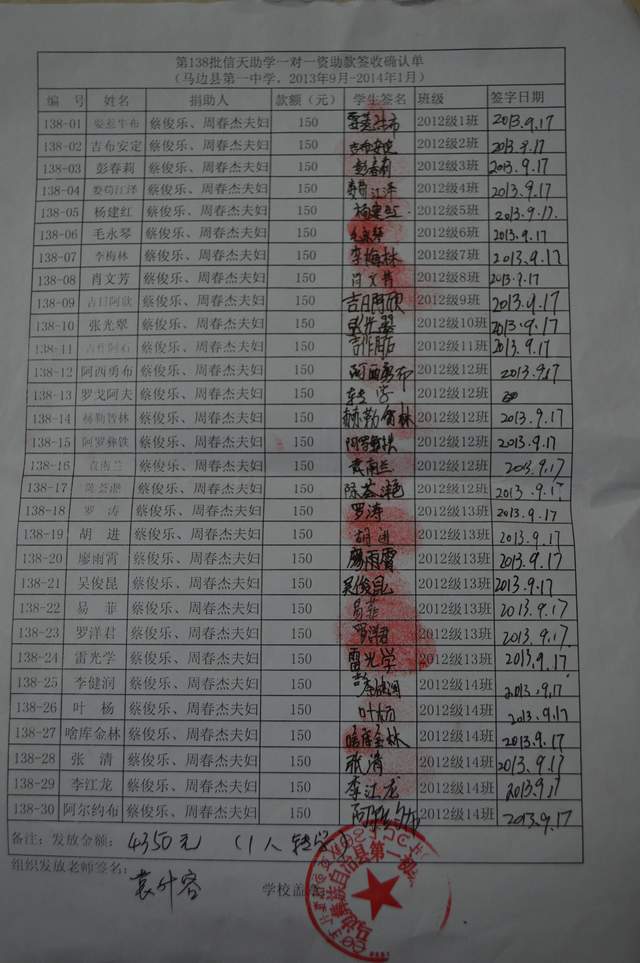 第138批信天助学一对一资助款签收确认单
（马边县第一中学，2013年9月-2014年1月）
编 号 姓名 捐助人 款额（元） 学生签名 班级 签字日期
138-01 蔡俊乐、周春杰夫妇 150 2012级1班 2013.9.17
138-02 吉布安定 蔡俊乐、周春杰夫妇 150 吉布安定 2012级2班 2013.9.17
138-03 彭春莉 蔡俊乐、周春杰夫妇 150 彭春莉 2012级3班 2013.9.17
138-04 蔡俊乐、周春杰夫妇 150 2012级4班 2013.9.17
138-05 杨建红 蔡俊乐、周春杰夫妇 150 杨建红 2012级5班 2013.9.17.
138-06 毛永琴 蔡俊乐、周春杰夫妇 150 毛永琴 2012级6班 2013.9.17
138-07 李梅林 蔡俊乐、周春杰夫妇 150 李梅林 2012级7班 2013.9.17
138-08 肖文芳 蔡俊乐、周春杰夫妇 150 肖文芳 2012级8班 2013.9.17
138-09 吉日阿欣 蔡俊乐、周春杰夫妇 150 吉日阿欣 2012级9班 2013.9.17
138-10 张光翠 蔡俊乐、周春杰夫妇 150 2012级10班 2013.9.17
138-11 吉作阿石 蔡俊乐、周春杰夫妇 150 2012级11班 2013.9.17
138-12 阿西勇布 蔡俊乐、周春杰夫妇 150 阿西勇布 2012级12班 2013.9.17
138-13 罗戈阿夫 蔡俊乐、周春杰夫妇 150 转学 2012级12班
138-14 赫勒智林 蔡俊乐、周春杰夫妇 150 赫勒智林 2012级12班 2013.9.17
138-15 阿罗彝铁 蔡俊乐、周春杰夫妇 150 2012级12班 2013.9.17
138-16 袁南兰 蔡俊乐、周春杰夫妇 150 袁南兰 2012级12班 2013.9.17
138-17 蔡俊乐、周春杰夫妇 150 2012级12班 2013.9.17
138-18 罗 涛 蔡俊乐、周春杰夫妇 150 罗涛 2012级13班 2013.9.17
138-19 胡 进 蔡俊乐、周春杰夫妇 150 胡进 2012级13班 2013.9.17
138-20 廖雨霄 蔡俊乐、周春杰夫妇 150 廖雨霄 2012级13班 2013.9.17
138-21 吴俊昆 蔡俊乐、周春杰夫妇 150 吴俊昆 2012级13班 2013.9.17
138-22 易 菲 蔡俊乐、周春杰夫妇 150 易菲 2012级13班 2013.9.17
138-23 罗洋君 蔡俊乐、周春杰夫妇 150 罗洋君 2012级13班 2013.9.17
138-24 雷光学 蔡俊乐、周春杰夫妇 150 雷光学 2012级13班 2013.9.17
138-25 李健润 蔡俊乐、周春杰夫妇 150 2012级14班 2013.9.17
138-26 叶 杨 蔡俊乐、周春杰夫妇 150 叶杨 2012级14班 2013.9.17
138-27 啥库金林 蔡俊乐、周春杰夫妇 150 啥库金林 2012级14班 2013.9.17
138-28 张 清 蔡俊乐、周春杰夫妇 150 张清 2012级14班 2013.9.17
138-29 李江龙 蔡俊乐、周春杰夫妇 150 李江龙 2012级14班 2013.9.17
138-30 阿尔约布 蔡俊乐、周春杰夫妇 150 阿尔约布 2012级14班 2013.9.17
备注：发放金额： 4350元 （1人转学）
组织发放老师签名：
学校盖章
马边彝族自治县第一初级